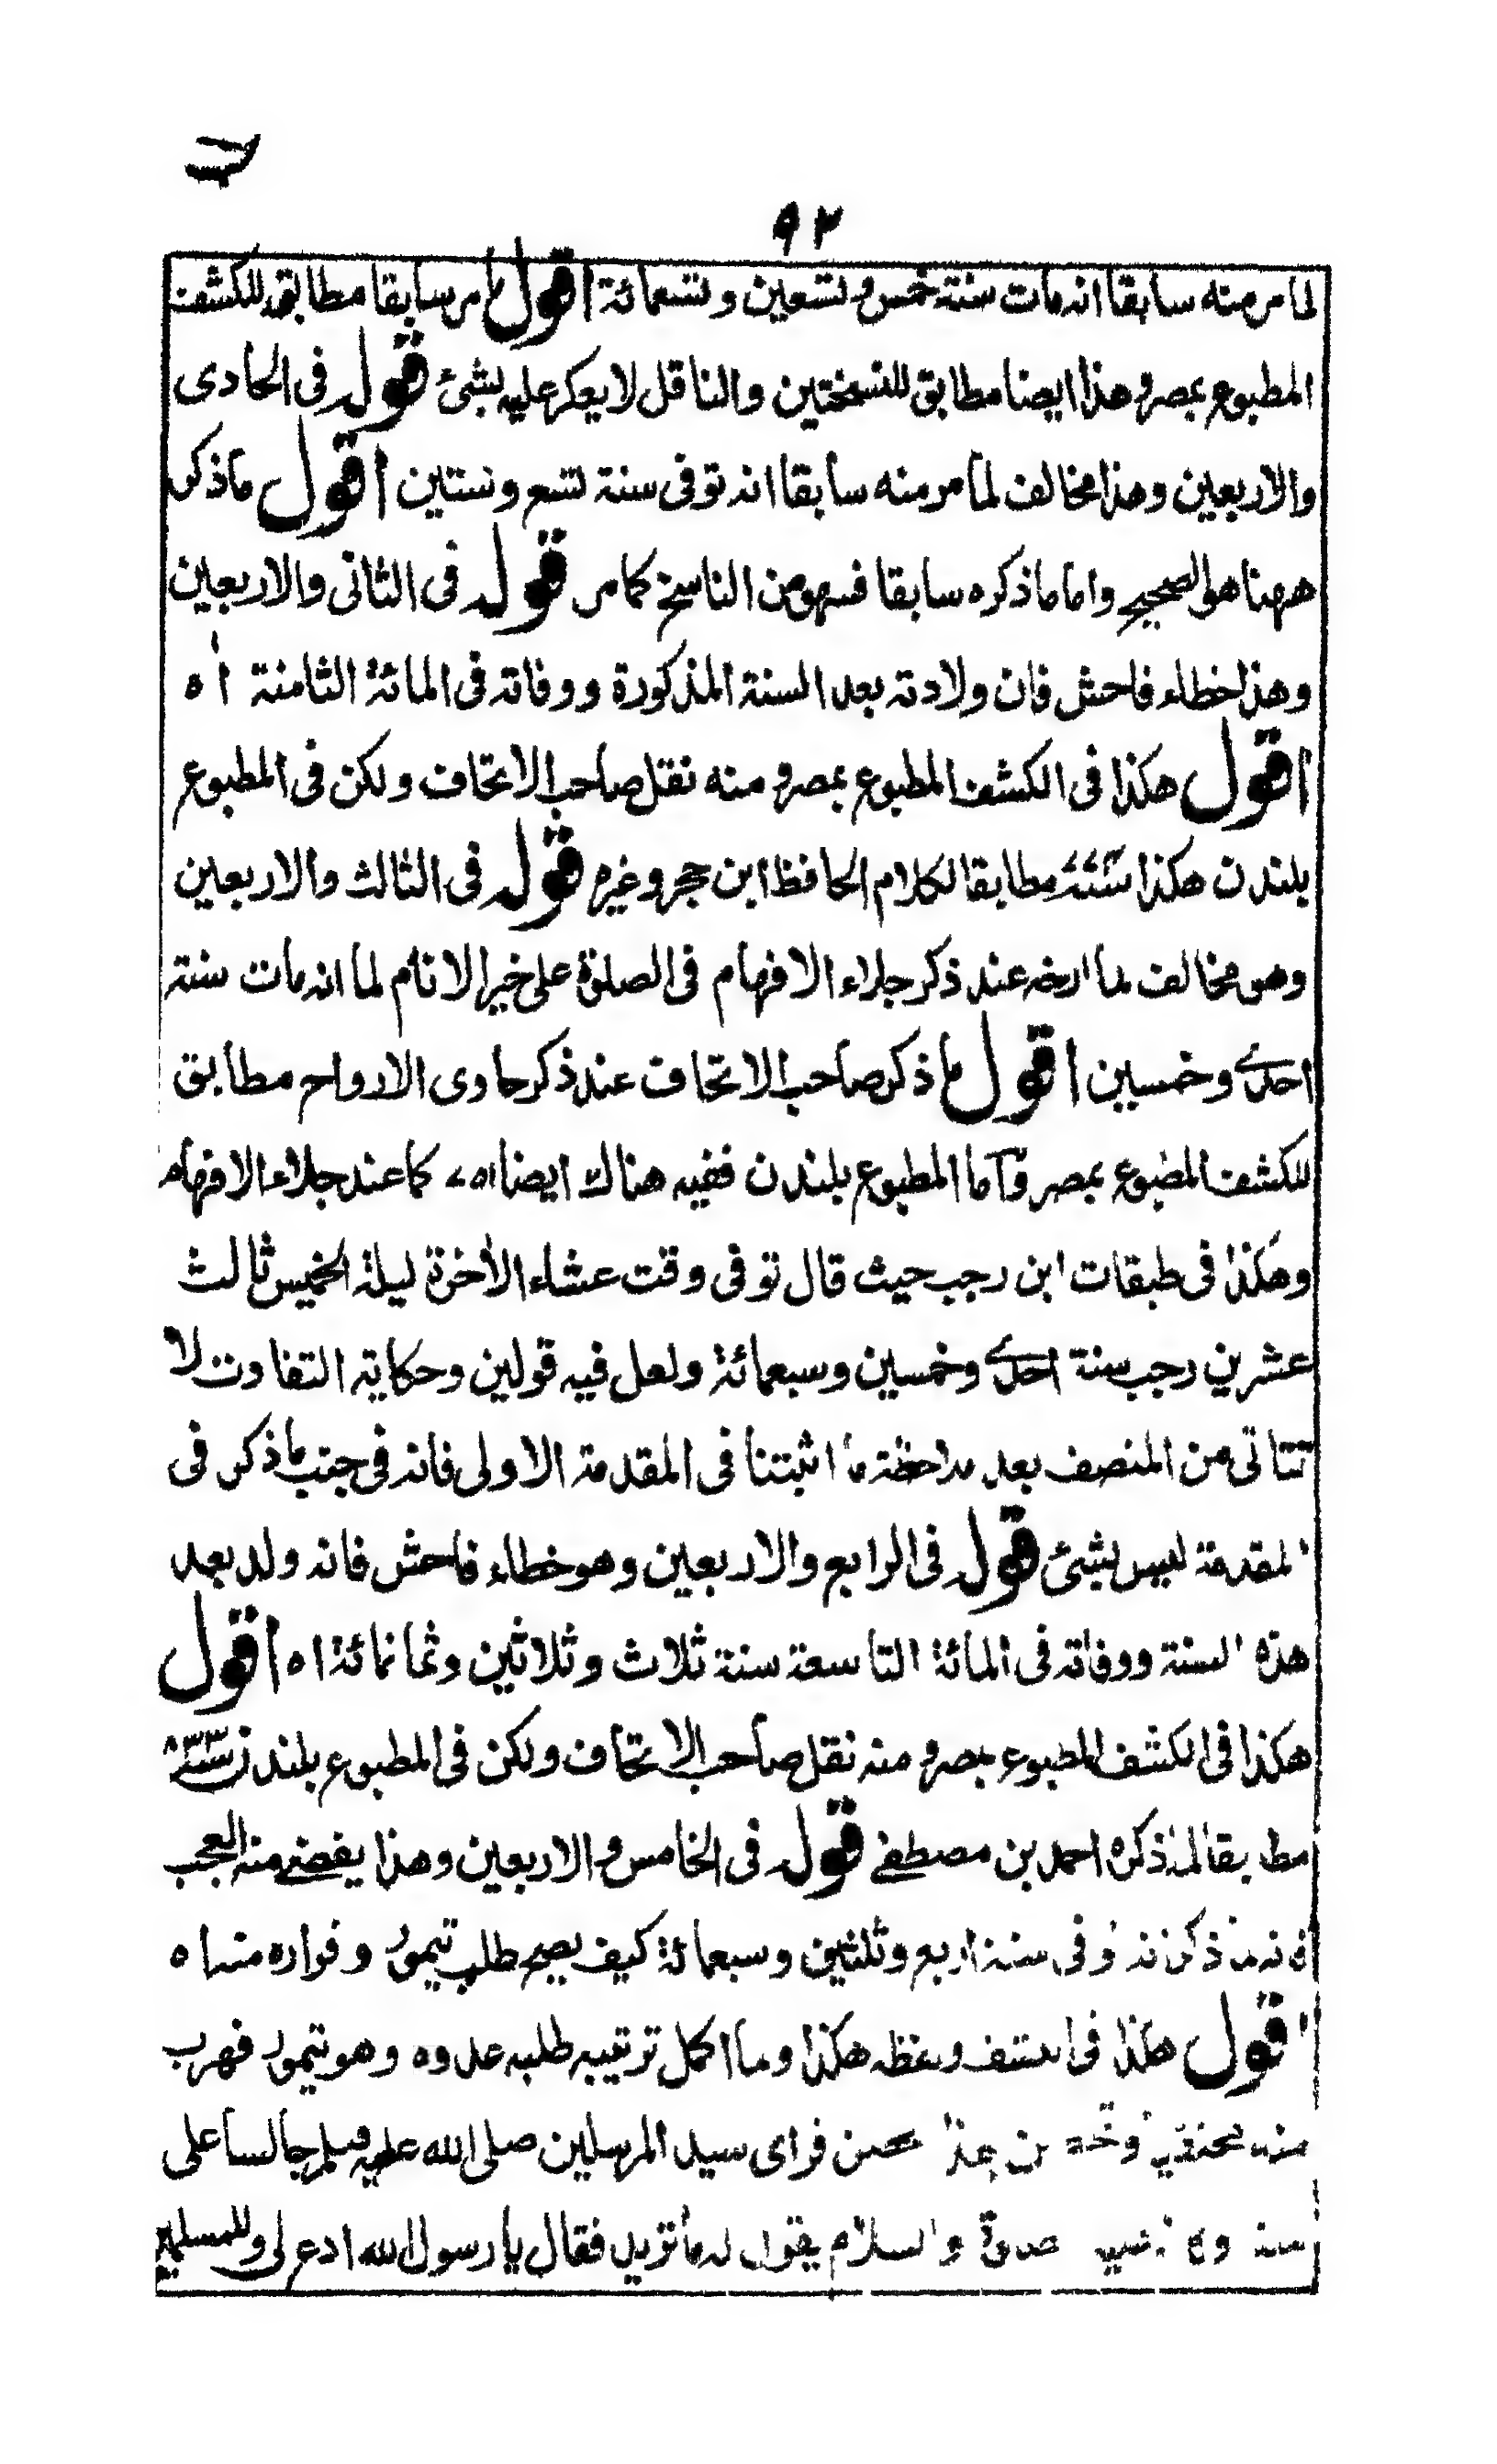 ٩٢
لما مر منه سابقا انه مات سنة خمس وتسعين وتسعمائة اقول ما مر سابقا مطابق للكشف
المطبوع بمصر وهذا ايضا مطابق للنسختين والناقل لا يعكر عليه بشئ قوله فى الحادى
والاربعين وهذا مخالف لما مر منه سابقا انه توفى سنة تسع وستين اقول ما ذكر
ههنا هو الصحيح واما ما ذكره سابقا فسهو من الناسخ كما مر قوله فى الثانى والاربعين
وهذا خطاء فاحش فان ولادته بعد السنة المذكورة ووفاته فى المائة الثامنة اه
اقول هكذا فى الكشف المطبوع بمصر ومنه نقل صاحب الاتحاف ولكن فى المطبوع
بلندن هكذا مطابقا لكلام الحافظ ابن حجر وغيره قوله فى الثالث والاربعين
وهو مخالف لما ارخه عند ذكر جلاء الافهام فى الصلوة على خير الانام لما انه مات سنة
احدى وخمسين اقول ما ذكر صاحب الاتحاف عند ذكر حاوى الارواح مطابق
للكشف المطبوع بمصر وآما المطبوع بلندن ففيه هناك ايضا ٧٥١ كما عند جلاء الافهام
وهكذا فى طبقات ابن رجب حيث قال توفى وقت عشاء الاخرة ليلة الخميس ثالث
عشرين رجب سنة احدى وخمسين وسبعمائة ولعل فيه قولين وحكاية التفاوت لا
تتاتى من المنصف بعد ملاحظة ما اثبتنا فى المقدمة الاولى فانه فى جنب ما ذكر فى
المقدمة ليس بشئ قوله فى الرابع والاربعين وهو خطاء فاحش فانه ولد بعد
هذه السنة ووفاته فى المائة التاسعة سنة ثلاث وثلاثين وثمانمائة اه اقول
هكذا فى الكشف المطبوع بمصر ومنه نقل صاحب الاتحاف ولكن فى المطبوع بلندن
مطابقا لما ذكره احمد بن مصطفے قوله فى الخامس والاربعين وهذا يفضے منه العجب
ذكر وفى سنة اربع وثلثين وسبعمائة كيف يصح طلب تيمور وفراره منه اه
اقول هكذا فى الكشف ولفظه هكذا وما اكمل ترتيبه طلبه عدوه وهو تيمور فهرب
منه مختفيا فراى سيد المرسلين صلى الله عليه وسلم جالسا على
والسلام يقول له ما تريد فقال يا رسول الله ادع لى وللمسلمين